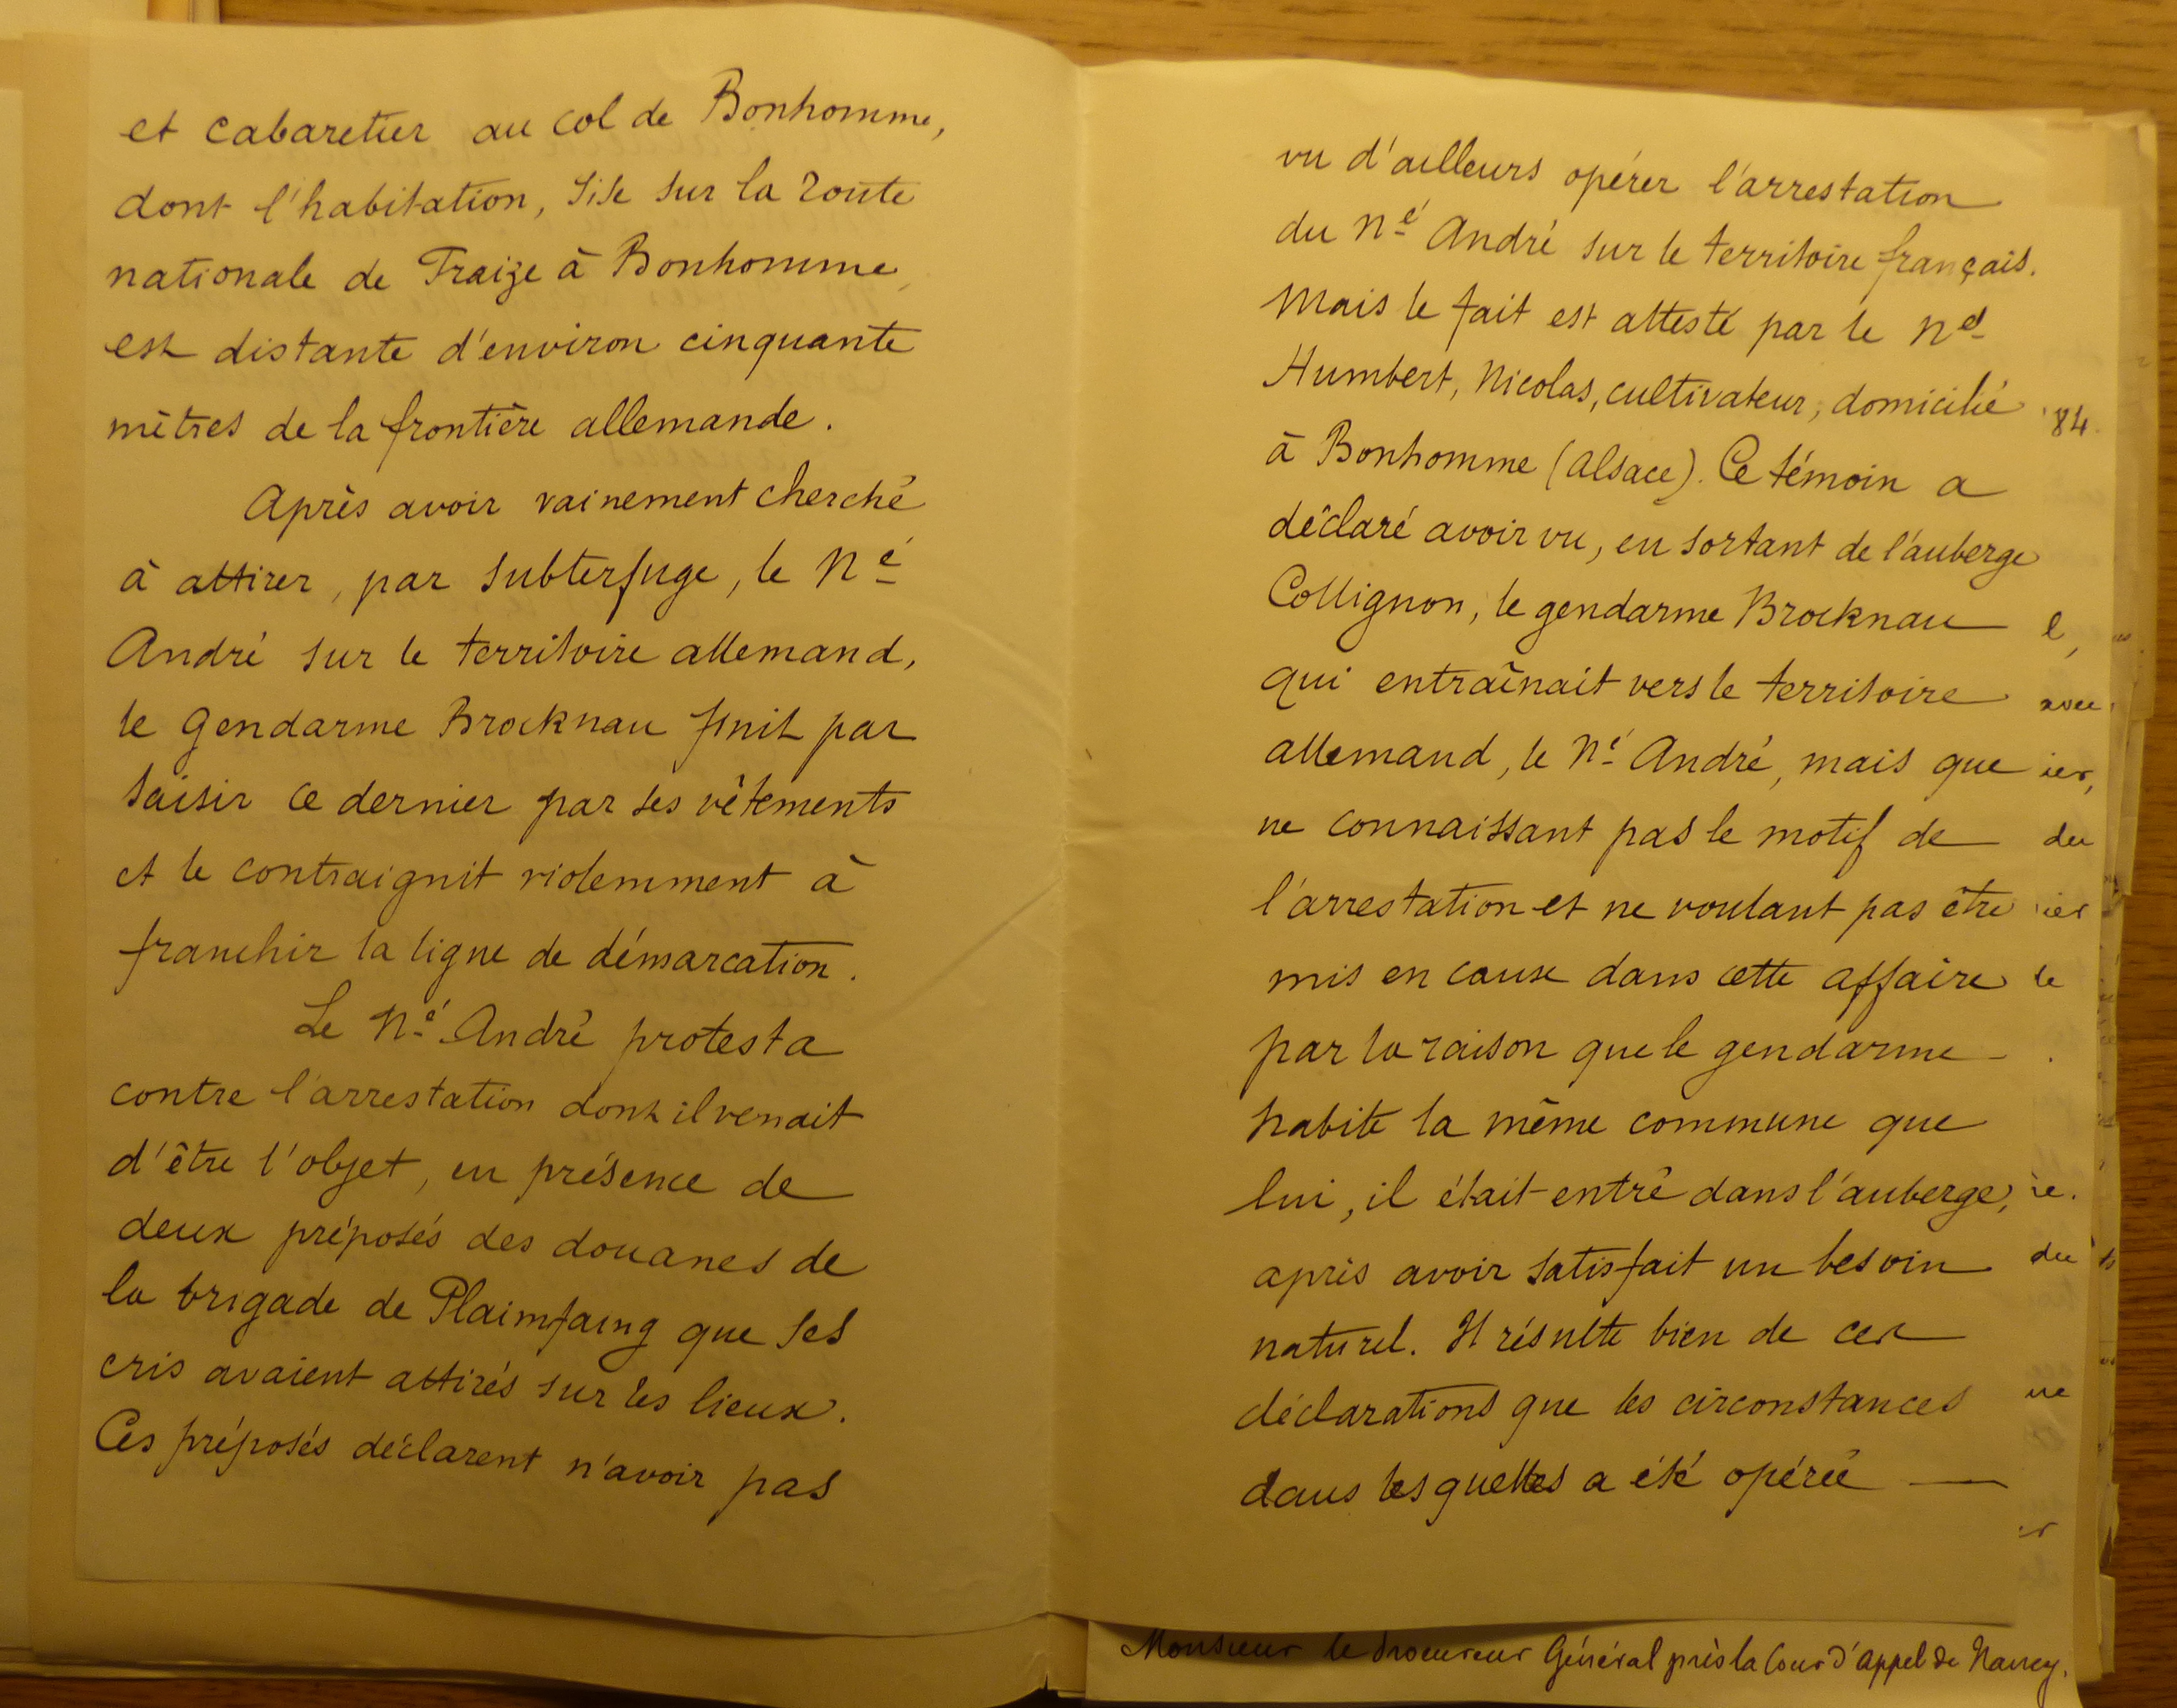 et cabaretier au col de Bonhomme,
dont l'habitation, sise sur la route
nationale de Fraize à Bonhomme,
est distante d'environ cinquante
mètres de la frontière allemande.
Après avoir vainement cherché
à attirer, par subterfuge, le Né
André sur le territoire allemand,
le gendarme Brocknau finit par
saisir ce dernier par ses vêtements
et le contraignit violemment à
franchir la ligne de démarcation.
Le Né André protesta
contre l'arrestation dont il venait
d'être l'objet, en présence de
deux préposés des douanes de
la brigade de Plaimfaing que ses
cris avaient attirés sur les lieux.
Ces préposés déclarent n'avoir pas
vu d'ailleurs opérer l'arrestation
du Né André sur le territoire français.
Mais le fait est attesté par le né
Humbert, Nicolas, cultivateur, domicilié
à Bonhomme (Alsace). Ce témoin a
déclaré avoir vu, en sortant de l'auberge
Collignon, le gendarme Brocknau
qui entraînait vers le territoire
allemand, le Né André, mais que
ne connaissant pas le motif de
l'arrestation et ne voulant pas être
mis en cause dans cette affaire
par la raison que le gendarme
habite la même commune que
lui, il était entré dans l'auberge,
après avoir satisfait un besoin
naturel. Il résulte bien de ces
déclarations que les circonstances
dans lesquelles a été opérée
84
avec
ier,
du
ier
le
du
ue
Monsieur le Procureur Général près la Cour d'Appel de Nancy.